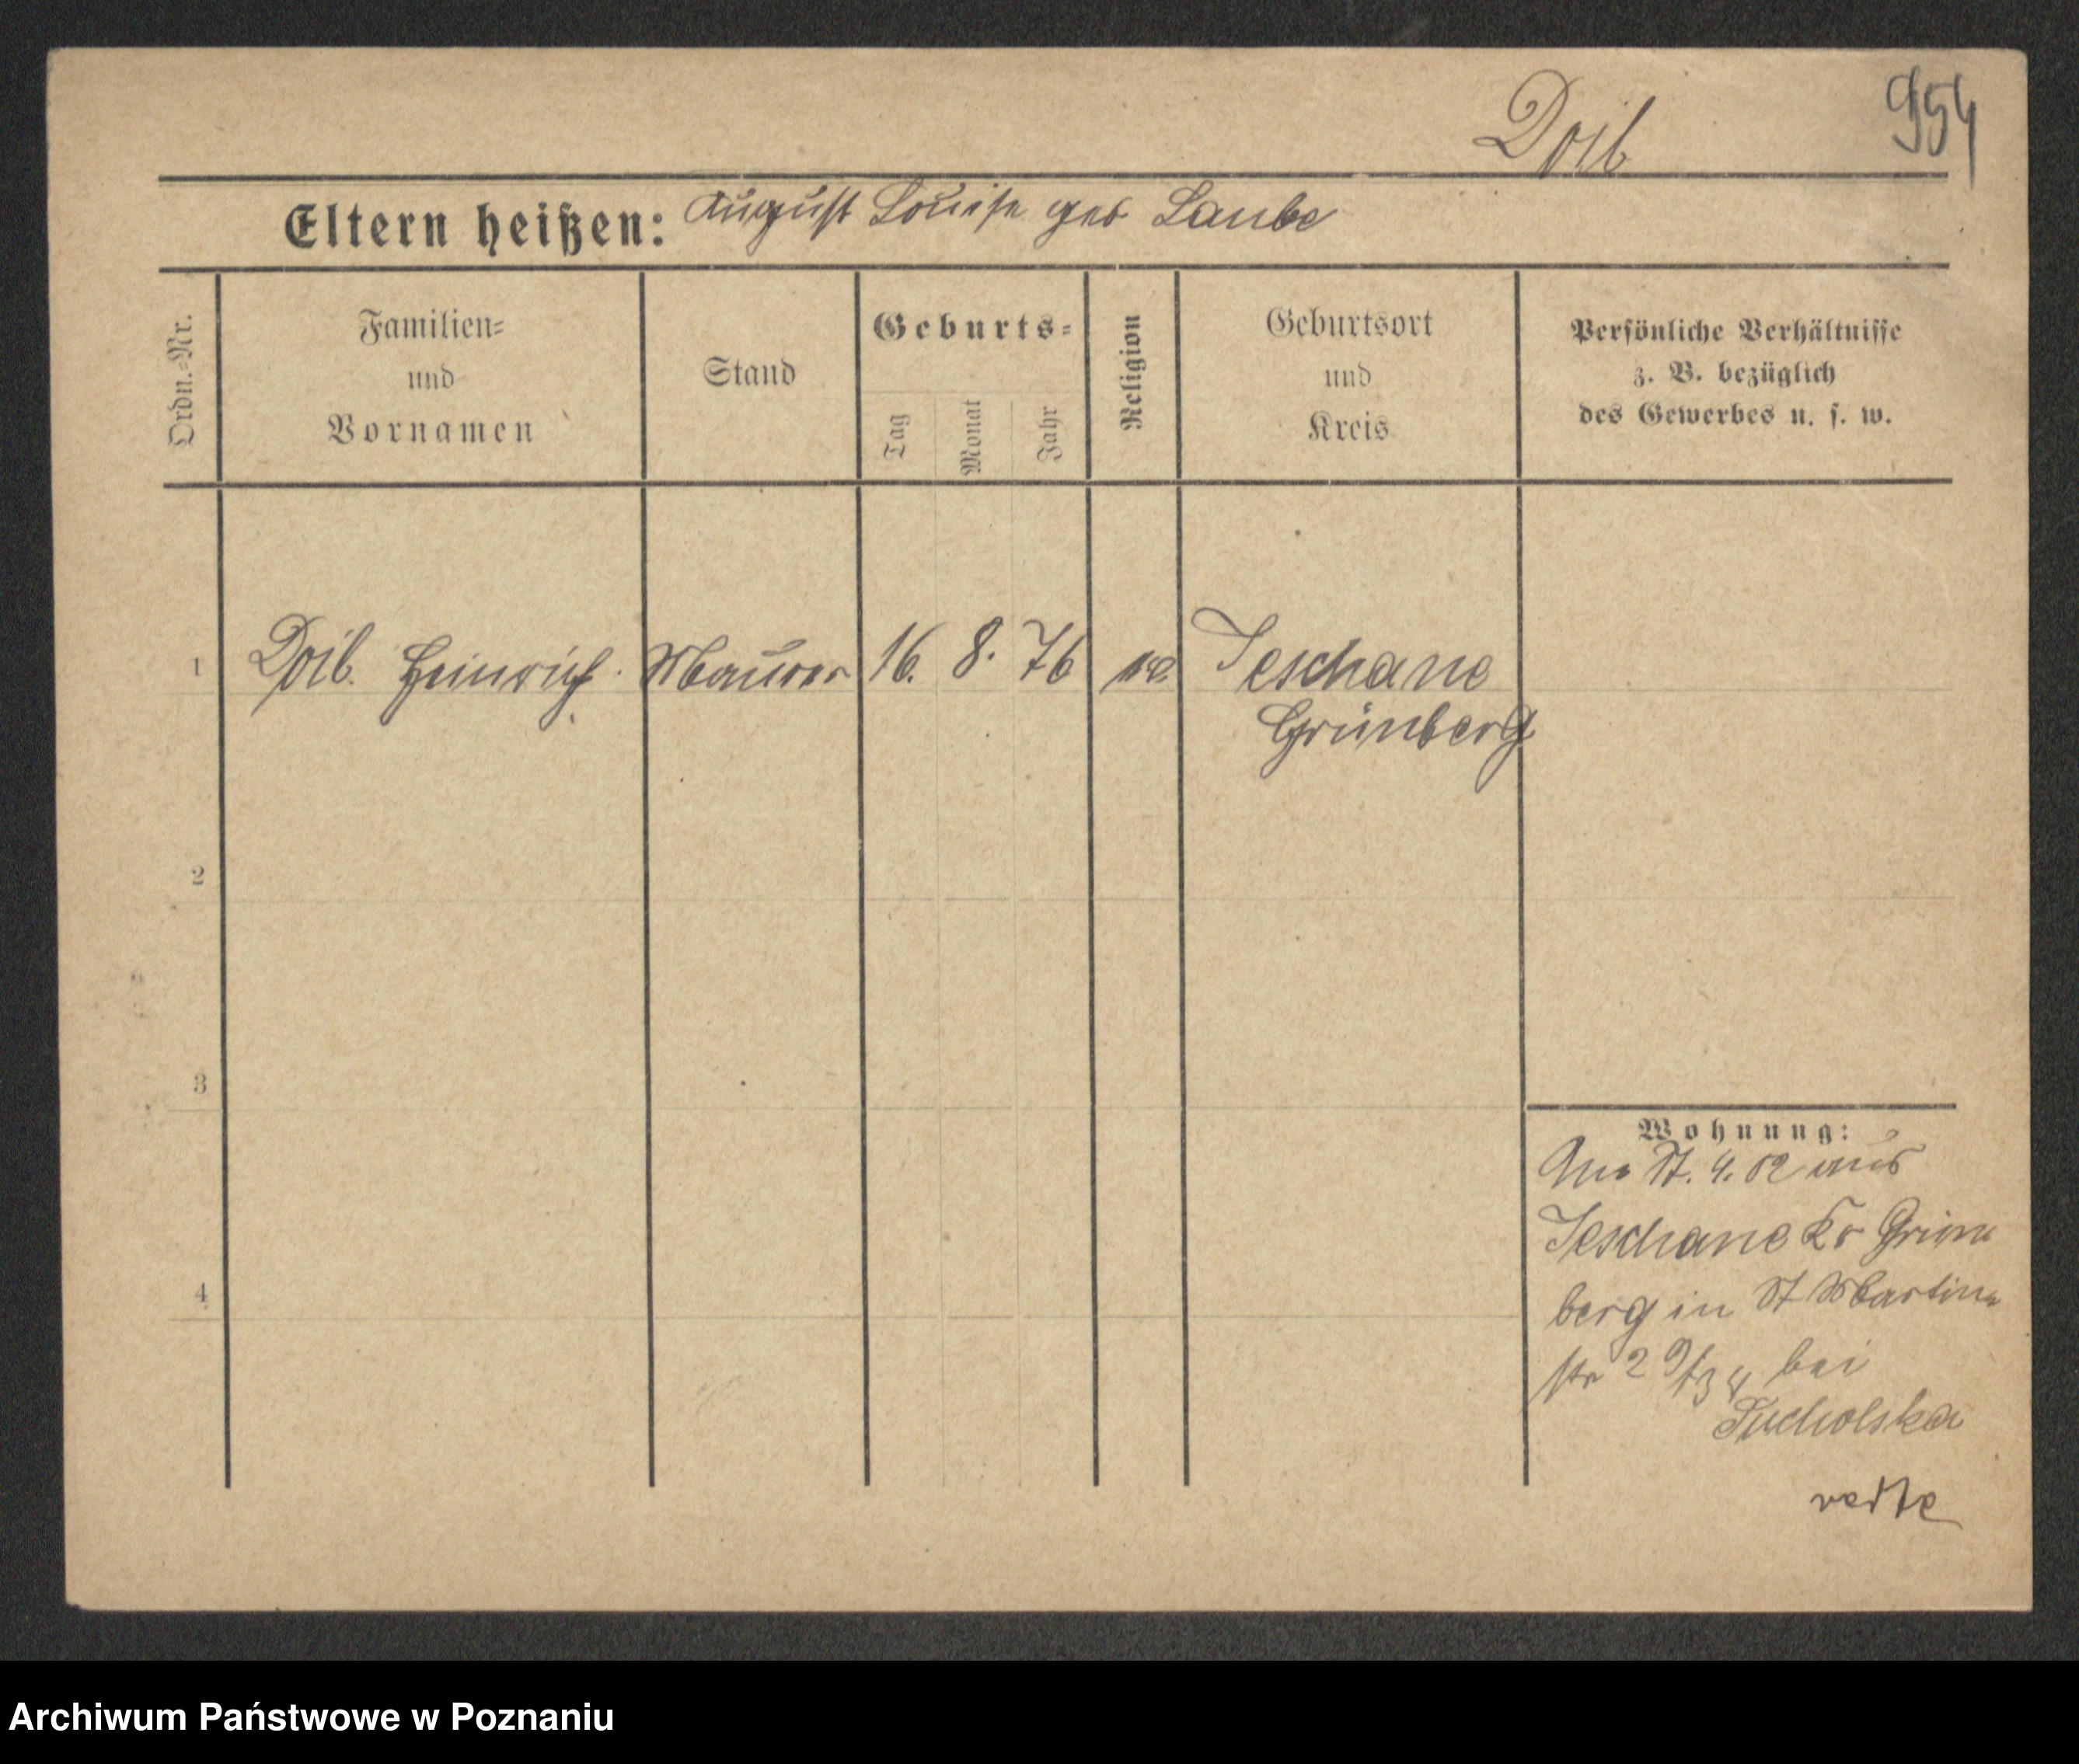 Doib
954
Eltern heißen: August Louise geb Laube
Ordn.-Nr.
Familien-
und
Vornamen
Stand
Geburts-
Tag
Monat
Jahr
Religion
Geburtsort
und
Kreis
Persönliche Verhältnisse
z. B. bezüglich
des Gewerbes u. s. w.
1 Doib. Heinrich. Maurer 16. 8. 76 Jeschane
Grünberg
2
3
4
Wohnung:
4. 02 aus
Jeschane Kr Grün
berg in St Martin
str 2 bei
Tucholska
Archiwum Państwowe w Poznaniu